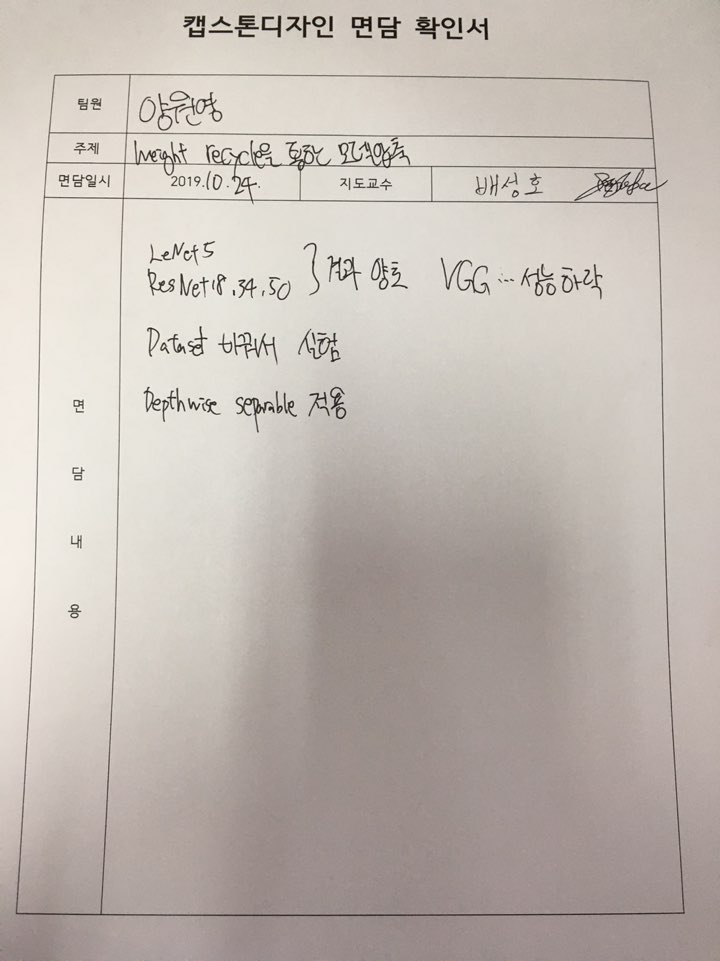 캡스톤디자인 면담 확인서
팀원 양원영
주제 weight recycle을 통한 모델압축
면담일시 2019.10.24. 지도교수 배성호
LeNet5
ResNet18.34.50 } 결과 양호 VGG … 성능하락
Dataset 바꿔서 실험
Depthwise separable 적용
면
담
내
용